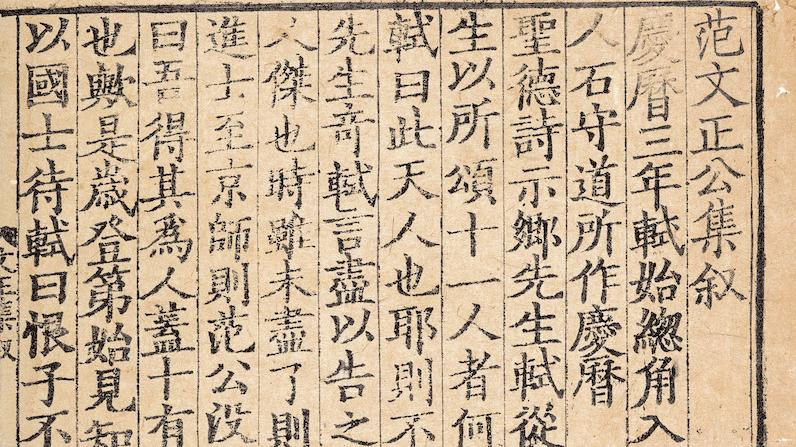 范文正公集叙
慶曆三年軾始緫角入
人石守道所作慶曆
聖德詩示鄉先生軾從
生以所頌十一人者何
軾曰此天人也耶則不
先生竒軾言盡以告之
人傑也時雖未盡了則
進士至京師則范公没
曰吾得其爲人蓋十有
也歟是歲登第始見知
以國士待軾曰恨子不
文正集叙